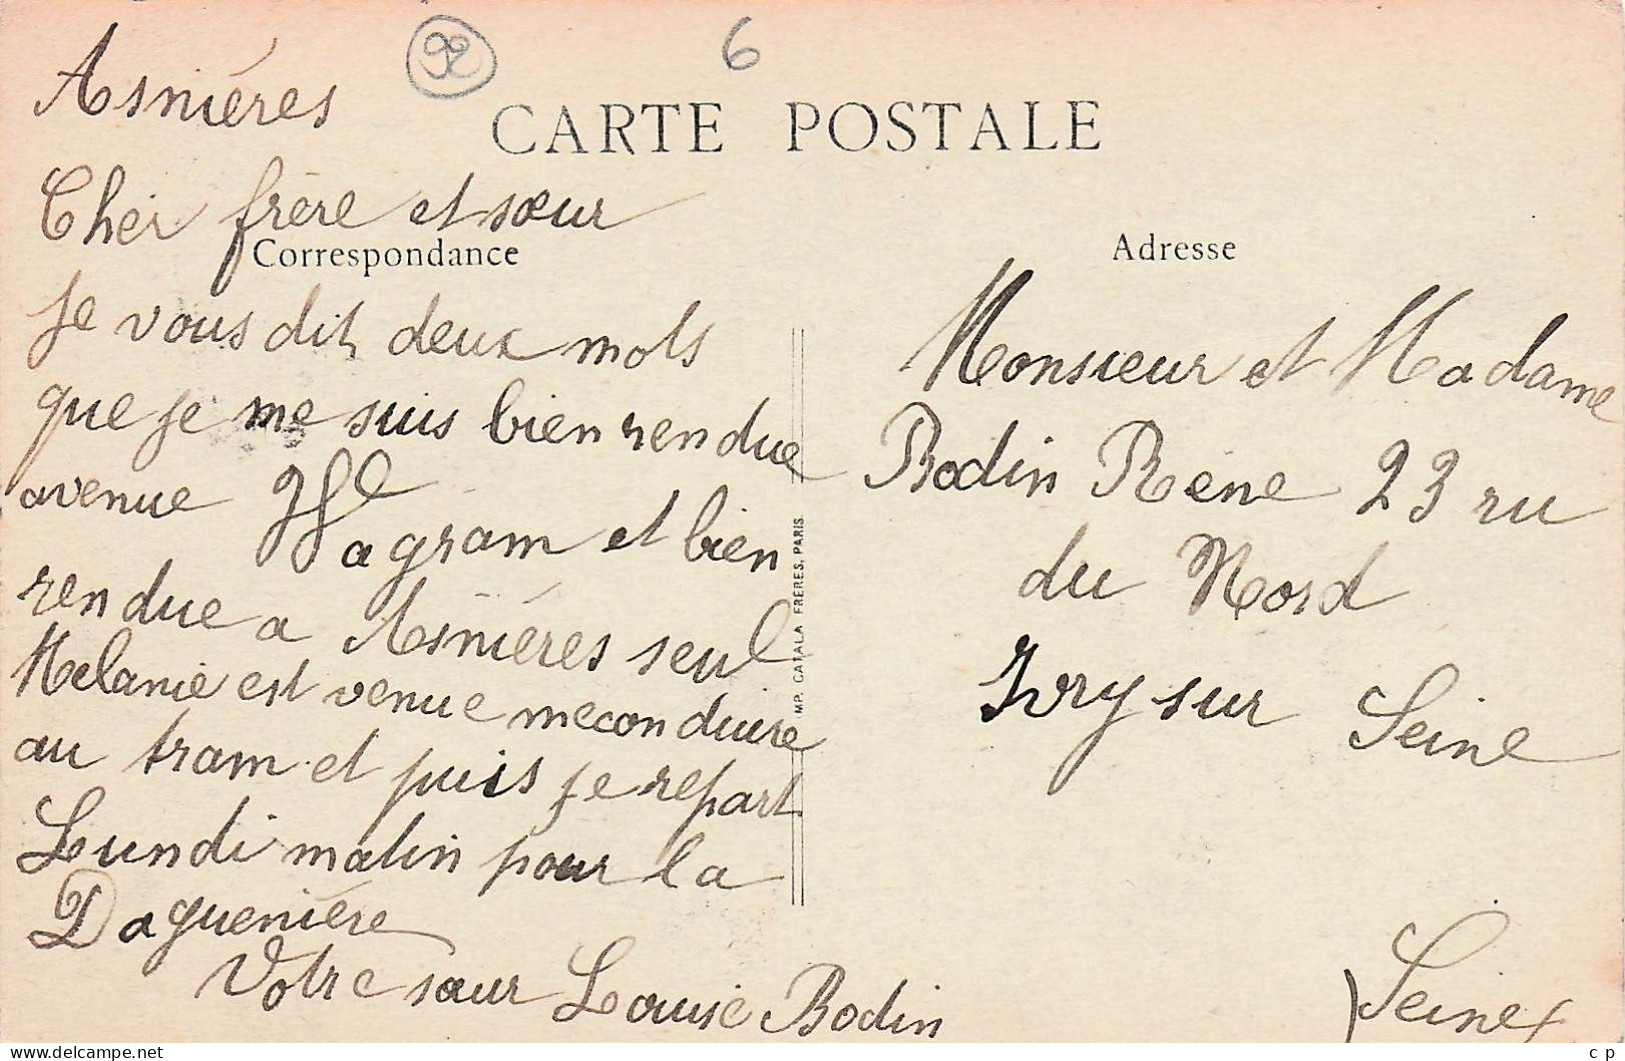 Asnières
92
6
CARTE POSTALE
Cher frère et sœur
Correspondance
Je vous dit deux mots
que je me suis bien rendue
avenue Wagram et bien
rendue a Asnières seul
Melanie est venue me conduire
au tram et puis je repart
Lundi matin pour la
Daguenière
Votre sœur Louise Bodin
IMP. CATALA FRERES, PARIS
Adresse
Monsieur et Madame
Bodin Réne 23 ru
du Nord
Ivry sur Seine
Seine
delcampe.net
c p